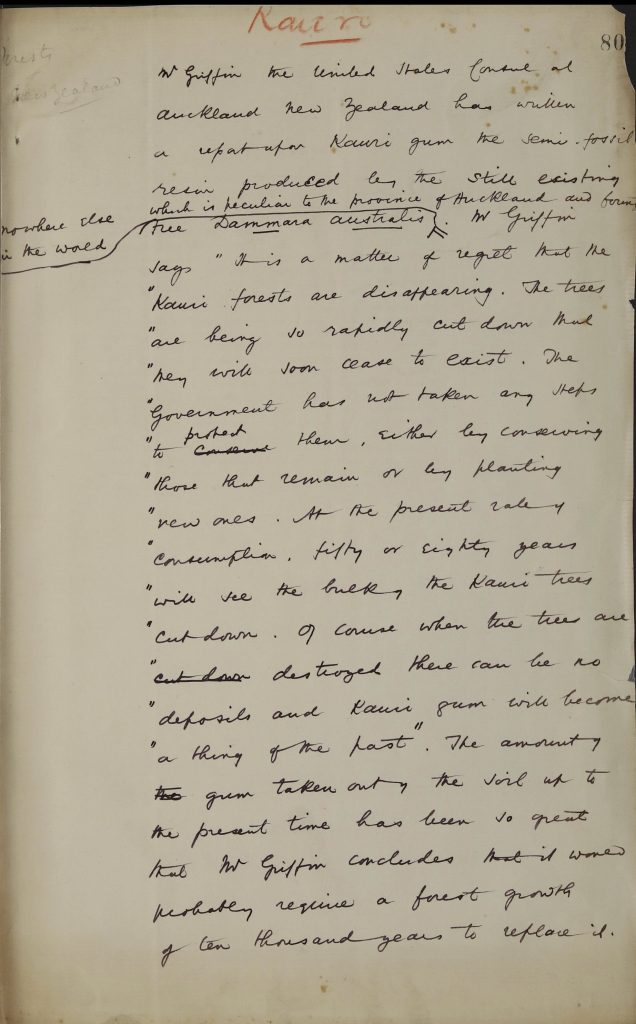 Kauri
80
Forests
New Zealand
Mr Griffin the United States Consul at
Auckland New Zealand has written
a report upon Kauri gum the semi-fossil
resin produced by the still existing
which is peculiar to the province of Auckland and found
nowhere else
in the world
tree Dammara australis. Mr Griffin
says "It is a matter of regret that the
"Kauri forests are disappearing. The trees
"are being so rapidly cut down that
"they will soon cease to exist. The
"Government has not taken any steps
protect
"to conserve them, either by conserving
"those that remain or by planting
"new ones. At the present rate of
"consumption, fifty or eighty years
"will see the bulk of the Kauri trees
"cut down. Of course when the trees are
"cut down destroyed there can be no
"deposits and Kauri gum will become
"a thing of the past". The amount of
the gum taken out of the soil up to
the present time has been so great
that Mr Griffin concludes that it would
probably require a forest growth
of ten thousand years to replace it.